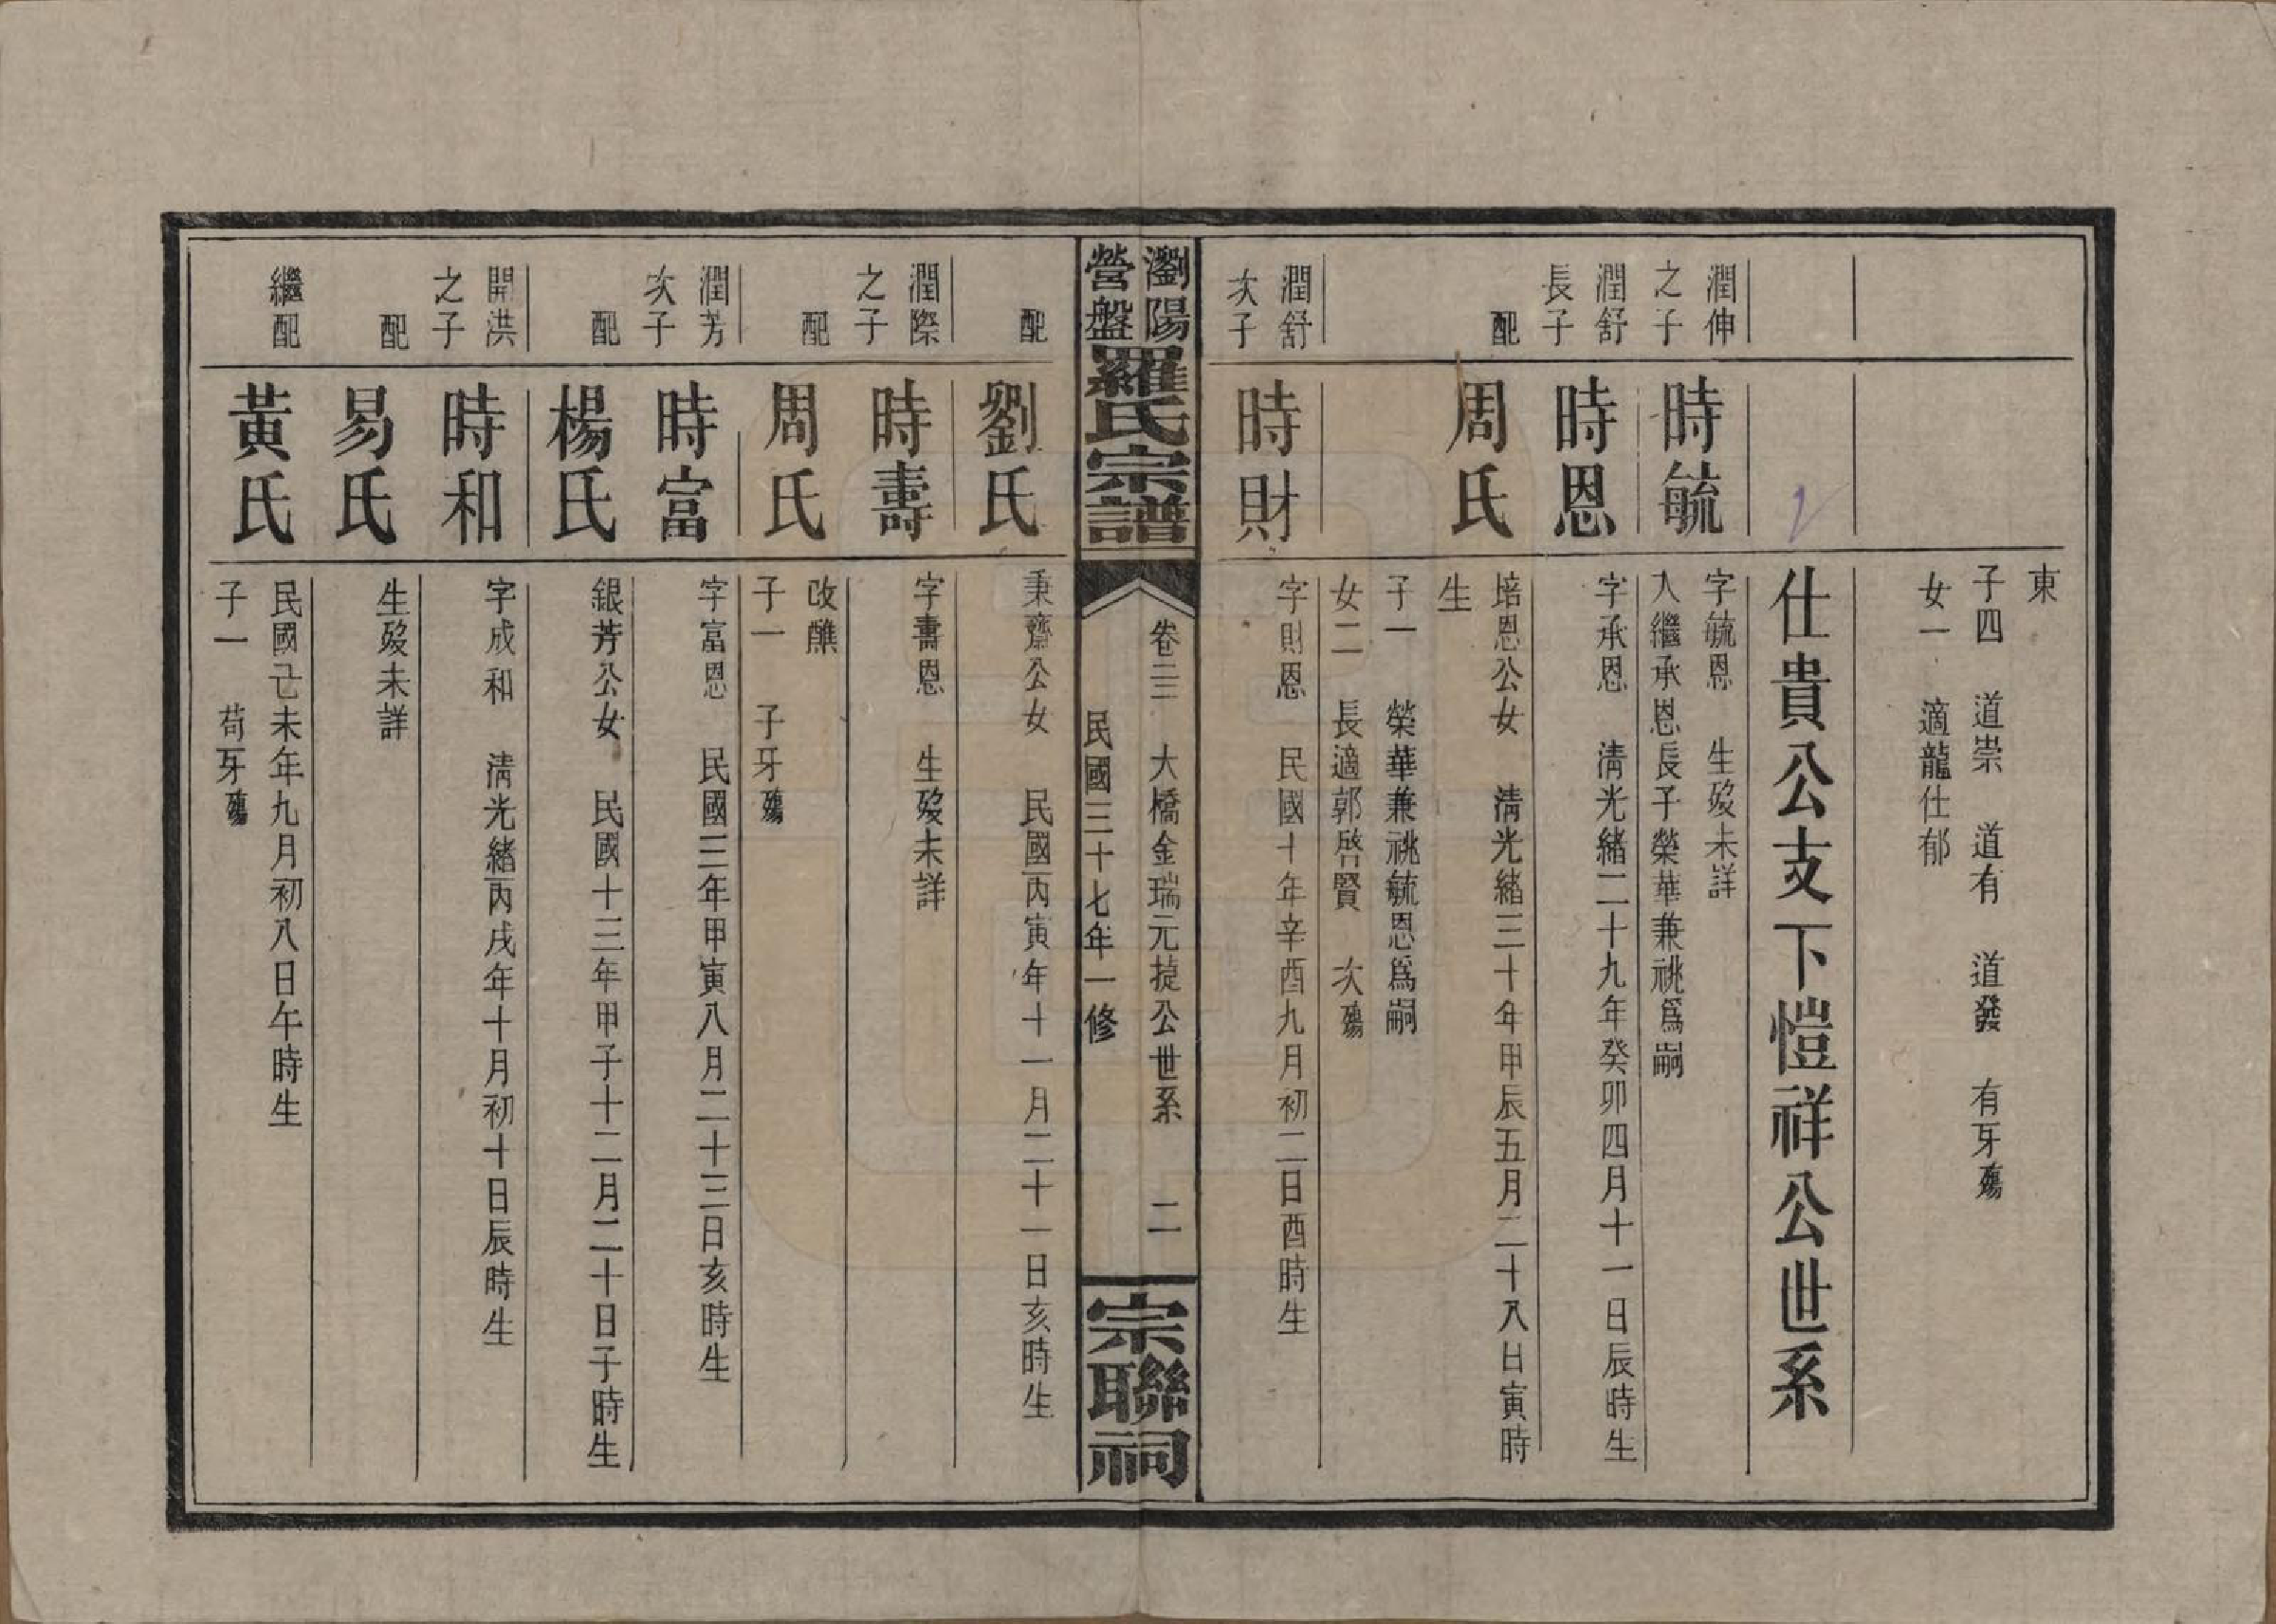 東
子四　道崇　道有　道發　有牙殤
女一　適龍仕郁
仕貴公支下愷祥公世系
潤伸之子
時毓
字毓恩　生歿未詳
入繼承恩長子榮華兼祧爲嗣
潤舒長子
時恩
字承恩　清光緒二十九年癸卯四月十一日辰時生
配
周氏
培恩公女　清光緒三十年甲辰五月二十八日寅時
生
子一　榮華兼祧毓恩爲嗣
女二　長適郭啓賢　次殤
潤舒次子
時財
字財恩　民國十年辛酉九月初二日酉時生
瀏陽營盤
羅氏宗譜
卷三二　大橋金瑞元㨗公世系　二
民國三十七年一修
宗聯祠
配
劉氏
秉齋公女　民國丙寅年十一月二十一日亥時生
潤際之子
時壽
字壽恩　生歿未詳
配
周氏
改醮
子一　子牙殤
潤芳次子
時富
字富恩　民國三年甲寅八月二十三日亥時生
配
楊氏
銀芳公女　民國十三年甲子十二月二十日子時生
開洪之子
時和
字成和　清光緒丙戌年十月初十日辰時生
配
易氏
生歿未詳
繼配
黃氏
民國己未年九月初八日午時生
子一　苟牙殤